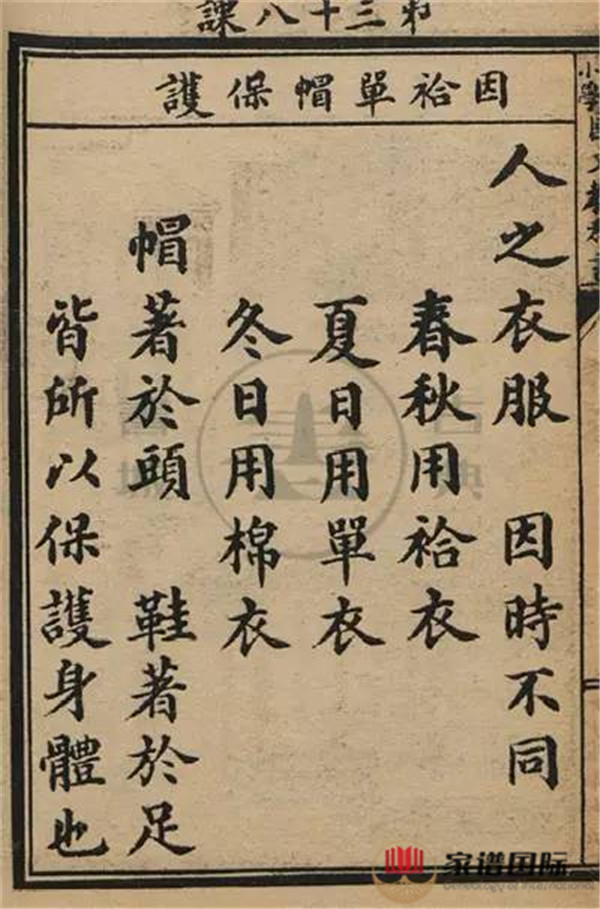 第三十八課
因袷單帽保護
人之衣服　因時不同
春秋用袷衣
夏日用單衣
冬日用棉衣
帽著於頭　鞋著於足
皆所以保護身體也
小學國文教科書
家谱国际
Genealogy of International